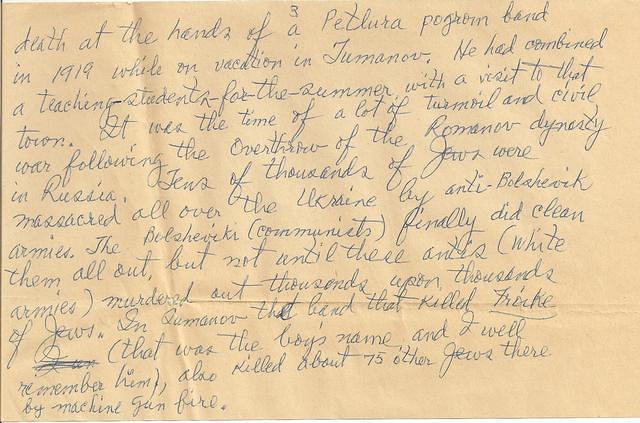 3
death at the hands of a Petlura pogrom band
in 1919 while on vacation in Tumanov. He had combined
a teaching-students-for-the-summer with a visit to that
town. It was the time of a lot of turmoil and civil
war following the Overthrow of the Romanov dynasty
in Russia. Tens of thousands of Jews were
massacred all over the Ukraine by anti-Bolshevik
armies. The Bolsheviki (communists) finally did clean
them all out, but not until these antis (White
armies) murdered out thousands upon thousands
of Jews. In Tumanov that band that killed Froike
(that was the boy's name, and I well
remember him), also killed about 75 other Jews there
by machine gun fire.